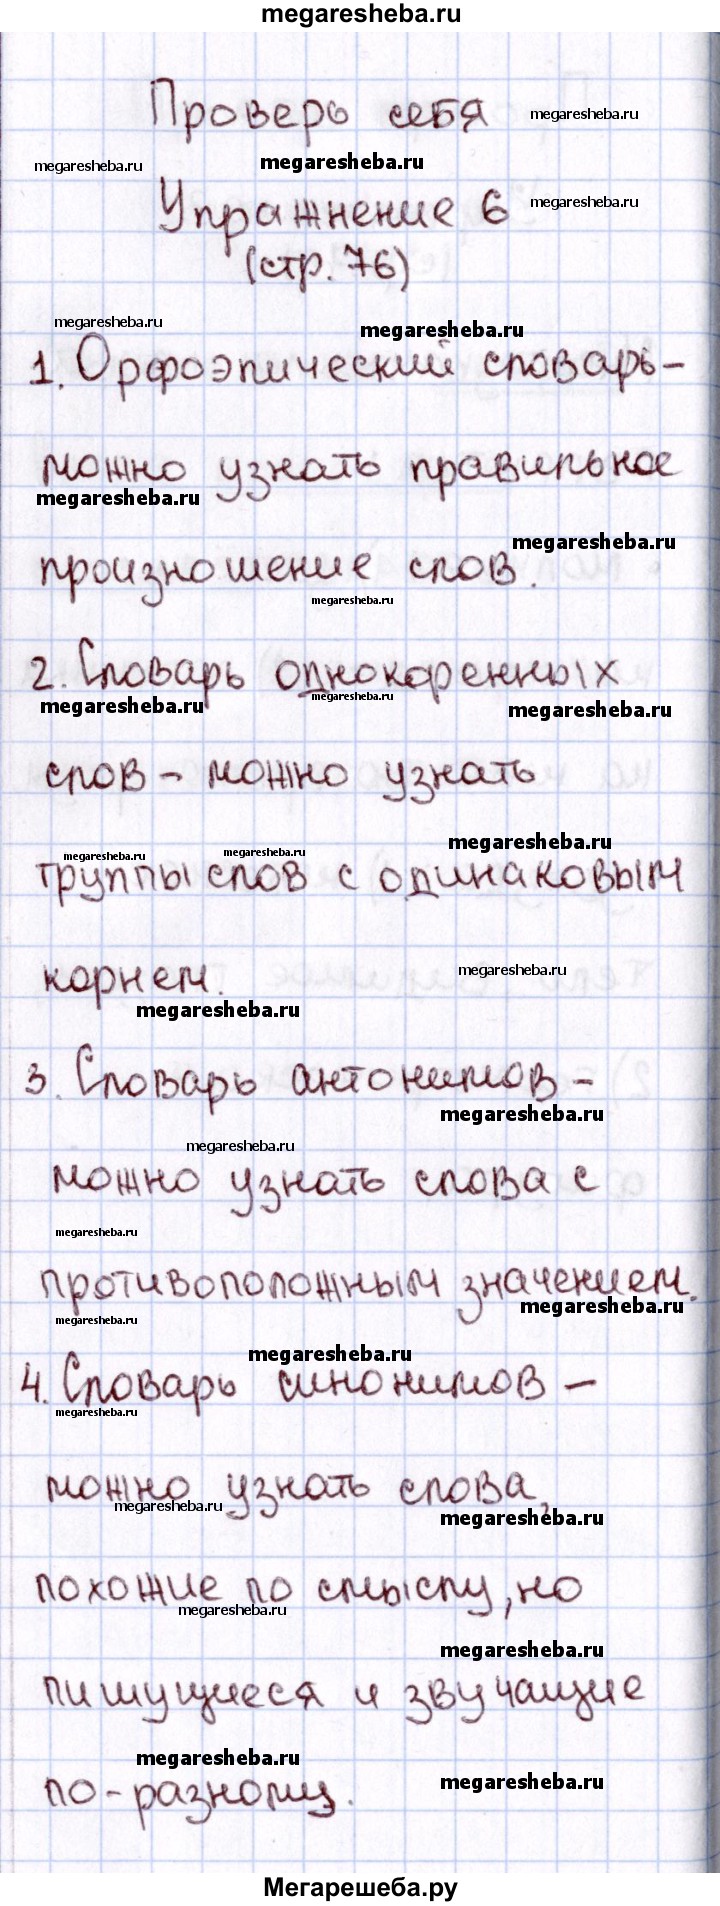 megaresheba.ru
Проверь себя
megaresheba.ru
megaresheba.ru
megaresheba.ru
Упражнение 6
megaresheba.ru
(стр. 76)
megaresheba.ru
megaresheba.ru
1. Орфоэпический словарь-
можно узнать правильное
megaresheba.ru
megaresheba.ru
произношение слов.
megaresheba.ru
2. Словарь однокоренных
megaresheba.ru
megaresheba.ru
megaresheba.ru
слов - можно узнать
megaresheba.ru
megaresheba.ru
megaresheba.ru
группы слов с одинаковым
корнем.
megaresheba.ru
megaresheba.ru
3. Словарь антонимов -
megaresheba.ru
megaresheba.ru
можно узнать слова с
megaresheba.ru
противоположным значением.
megaresheba.ru
megaresheba.ru
megaresheba.ru
4. Словарь синонимов -
megaresheba.ru
можно узнать слова,
megaresheba.ru
megaresheba.ru
похожие по смыслу, но
megaresheba.ru
megaresheba.ru
пишущиеся и звучащие
megaresheba.ru
megaresheba.ru
по-разному.
Мегарешеба.ру